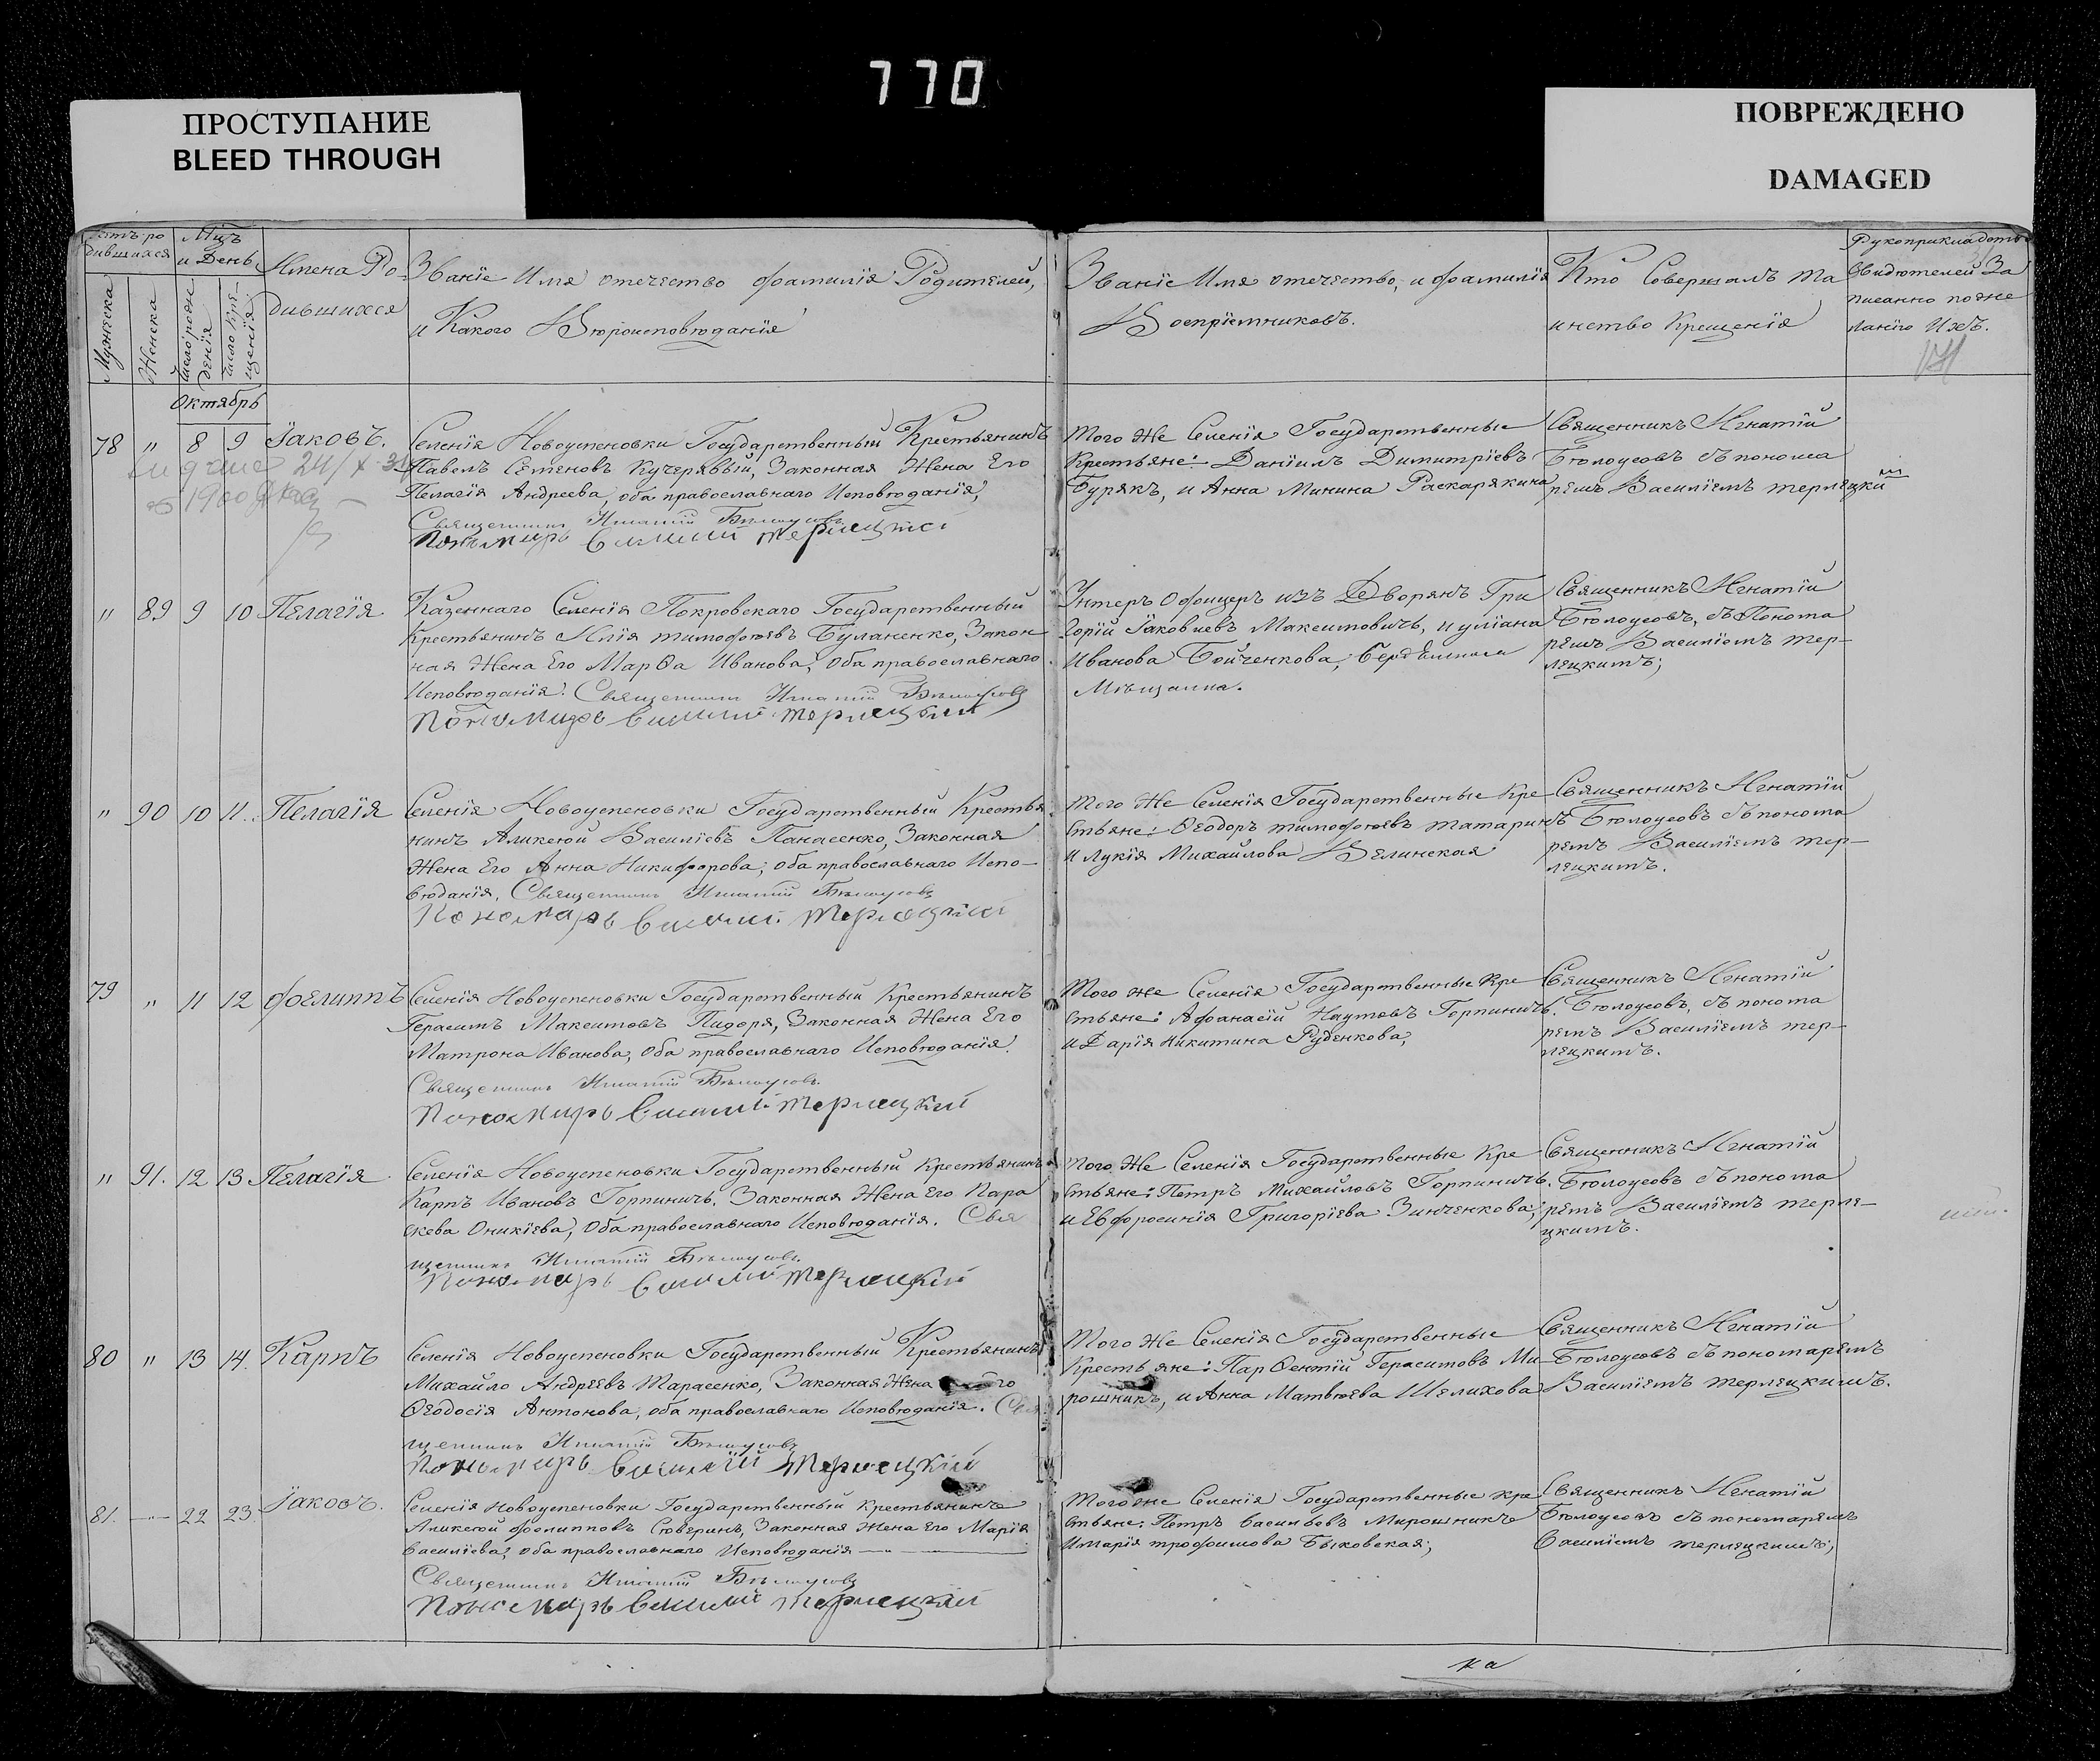 770
ПРОСТУПАНИЕ
BLEED THROUGH
ПОВРЕЖДЕНО
DAMAGED
Мцъ
и День
Мужеска
Женска
Число рож
денія
Число Кре-
щенія
Имена Ро-
дившихся
Званіе Имя отечество фамилія Родителей,
и Какого Вѣроисповѣданія
Званіе Имя отечество, и фамилія
Воспріемниковъ.
Кто Совершалъ та
инство Крещенія
Рукоприкладство
Свидѣтелей За
писанно по же
ланію Ихъ.
Октябрь
78 " 8 9 Іаковъ.
Селенія Новоуспеновки Государственный Крестьянинъ
Павелъ Семеновъ Кучерявый, Законная Жена Его
Пелагія Андреева, оба православнаго Исповѣданія,
Священникъ Игнатій Бѣлоусовъ
Пономарь Василий Терлецкій
Того Же Селенія Государственные
Крестьяне: Даніилъ Димитріевъ
Бурякъ, и Анна Минина Раскарякина
Священникъ Игнатій
Бѣлоусовъ съ понома
ремъ Василіемъ терлецки
мъ
" 89 9 10 Пелагія
Казеннаго Селенія Покровскаго Государственный
Крестьянинъ Илія тимофѣевъ Буланенко, Закон
ная Жена Его Марѳа Иванова, оба православнаго
Исповѣданія. Священникъ Игнатій Бѣлоусовъ
Пономарь Василий терлецкий
Унтеръ Офицеръ изъ Дворянъ Гри
горій Іаковлевъ Максимовичъ, и уліана
Иванова Бойченкова,
Мѣщанка.
Священникъ Игнатій
Бѣлоусовъ, съ Понома
ремъ Василіемъ тер-
лецкимъ;
" 90 10 11. Пелагія
Селенія Новоуспеновки Государственный Крестья
нинъ Аликсѣй Василіевъ Панасенко, Законная
Жена Его Анна Никифорова, оба православнаго Испо-
вѣданія. Священникъ Игнатій Бѣлоусовъ
Пономарь Василий Терлецкій
Того Же Селенія Государственные Кре
стьяне: Ѳеодоръ тимофѣевъ татаринъ
и Лукія Михайлова Велинская
Священникъ Игнатій
Бѣлоусовъ съ понома
ремъ Василіемъ тер-
лецкимъ.
79 " 11 12 Феелиппъ
Селенія Новоуспеновки Государственный Крестьянинъ
Герасимъ Максимовъ Пидоря, Законная Жена Его
Матрона Иванова, оба православнаго Исповѣданія.
Священникъ Игнатій Бѣлоусовъ
Пономарь Василий Терлецкий
Того же Селенія Государственные Кре
стьяне: Афанасій Наумовъ Горпиничъ.
и Дарія Никитина Руденкова,
Священникъ Игнатій
Бѣлоусовъ, съ понома
ремъ Василіемъ тер-
лецкимъ.
" 91. 12 13 Пелагія
Селенія Новоуспеновки Государственный Крестьянинъ
Карпъ Ивановъ Горпиничъ. Законная Жена Его Пара
скева Оникіева, оба православнаго Исповѣданія. Свя
щенникъ Игнатій Бѣлоусовъ
Пономарь Василий Терлецкій
Того Же Селенія Государственные Кре
стьяне: Петръ Михайловъ Горпиничъ.
и Евфросинія Григоріева Зинченкова,
Священникъ Игнатій
Бѣлоусовъ съ понома
ремъ Василіемъ терле-
цкимъ.
80 " 13 14. Карпъ
Селенія Новоуспеновки Государственный Крестьянинъ
Михайло Андреевъ Тарасенко, Законная Жена его
Ѳеодосія Антонова, оба православнаго Исповѣданія. Свя
щенникъ Игнатій Бѣлоусовъ
Пономарь Василій Терлецкий
Того Же Селенія Государственные
Крестьяне: Парѳентій Герасимовъ Ми
рошникъ, и Анна Матвѣева Шелихова
Священникъ Игнатій
Бѣлоусовъ съ пономаремъ
Василіемъ терлецкимъ.
81. " 22 23. Іаковъ.
Селенія Новоуспеновки Государственный Крестьянинъ
Аликсѣй феелипповъ Сюверинъ, Законная Жена Его Марія
Василіева, оба православнаго Исповѣданія
Священникъ Игнатій Бѣлоусовъ
Пономарь Василий терлецкий
Того же Селенія Государственные Кре
стьяне: Петръ Васильевъ Мирошникъ
и Марія трофимова Быковская;
Священникъ Игнатій
Бѣлоусовъ съ пономаремъ
Василіемъ терлецкимъ;
ка